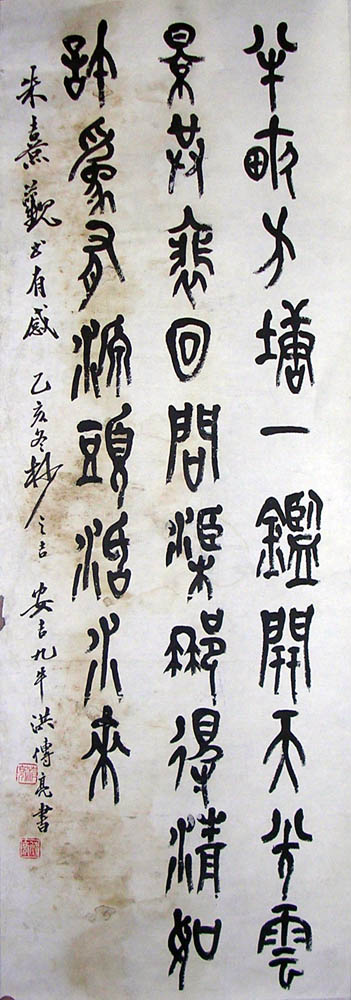 半畝方塘一鑑開天光雲
景共裵回問渠那得清如
許爲有源頭活水來
朱熹觀书有感 乙亥冬杪之吉 安吉九平洪傳亮書